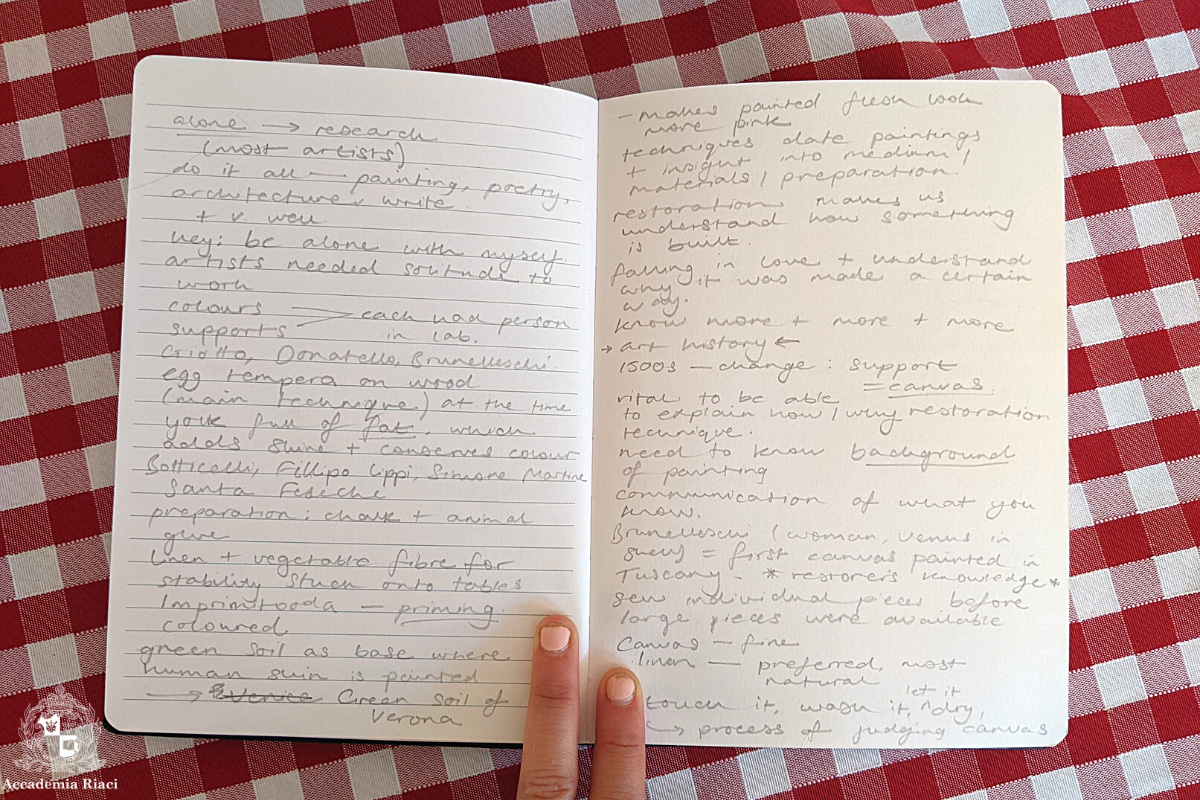 alone → research
(most artists)
do it all — painting, poetry,
architecture, write
+ v. well.
key: be alone with myself.
artists needed solitude to
work
colours
supports
each had person
in lab.
Giotto, Donatello, Brunelleschi
egg tempera on wood
(main technique) at the time
yolk full of fat, which
adds shine + conserves colour
Botticelli, Fillipo Lippi, Simone Martine
Santa
preparation: chalk + animal
glue
linen + vegetable fibre for
stability stuck onto tables
Imprimitooda — priming.
coloured
green soil as base where
human skin is painted
→ Venice Green soil of
Verona
- makes painted flesh look
more pink
techniques date paintings
+ insight into medium /
materials / preparation.
restoration makes us
understand how something
is built.
falling in love + understand
why it was made a certain
way.
know more + more + more
→ art history ←
1500s — change : support
= canvas.
vital to be able
to explain how / why restoration
technique.
need to know background
of painting
communication of what you
know.
Brunelleschi (woman, venus in
) = first canvas painted in
Tuscany - * restorer's knowledge *
sew individual pieces before
large pieces were available
Canvas — fine
linen — preferred, most
natural
touch it, wash it, let it dry,
↳ process of judging canvas
Accademia Riaci